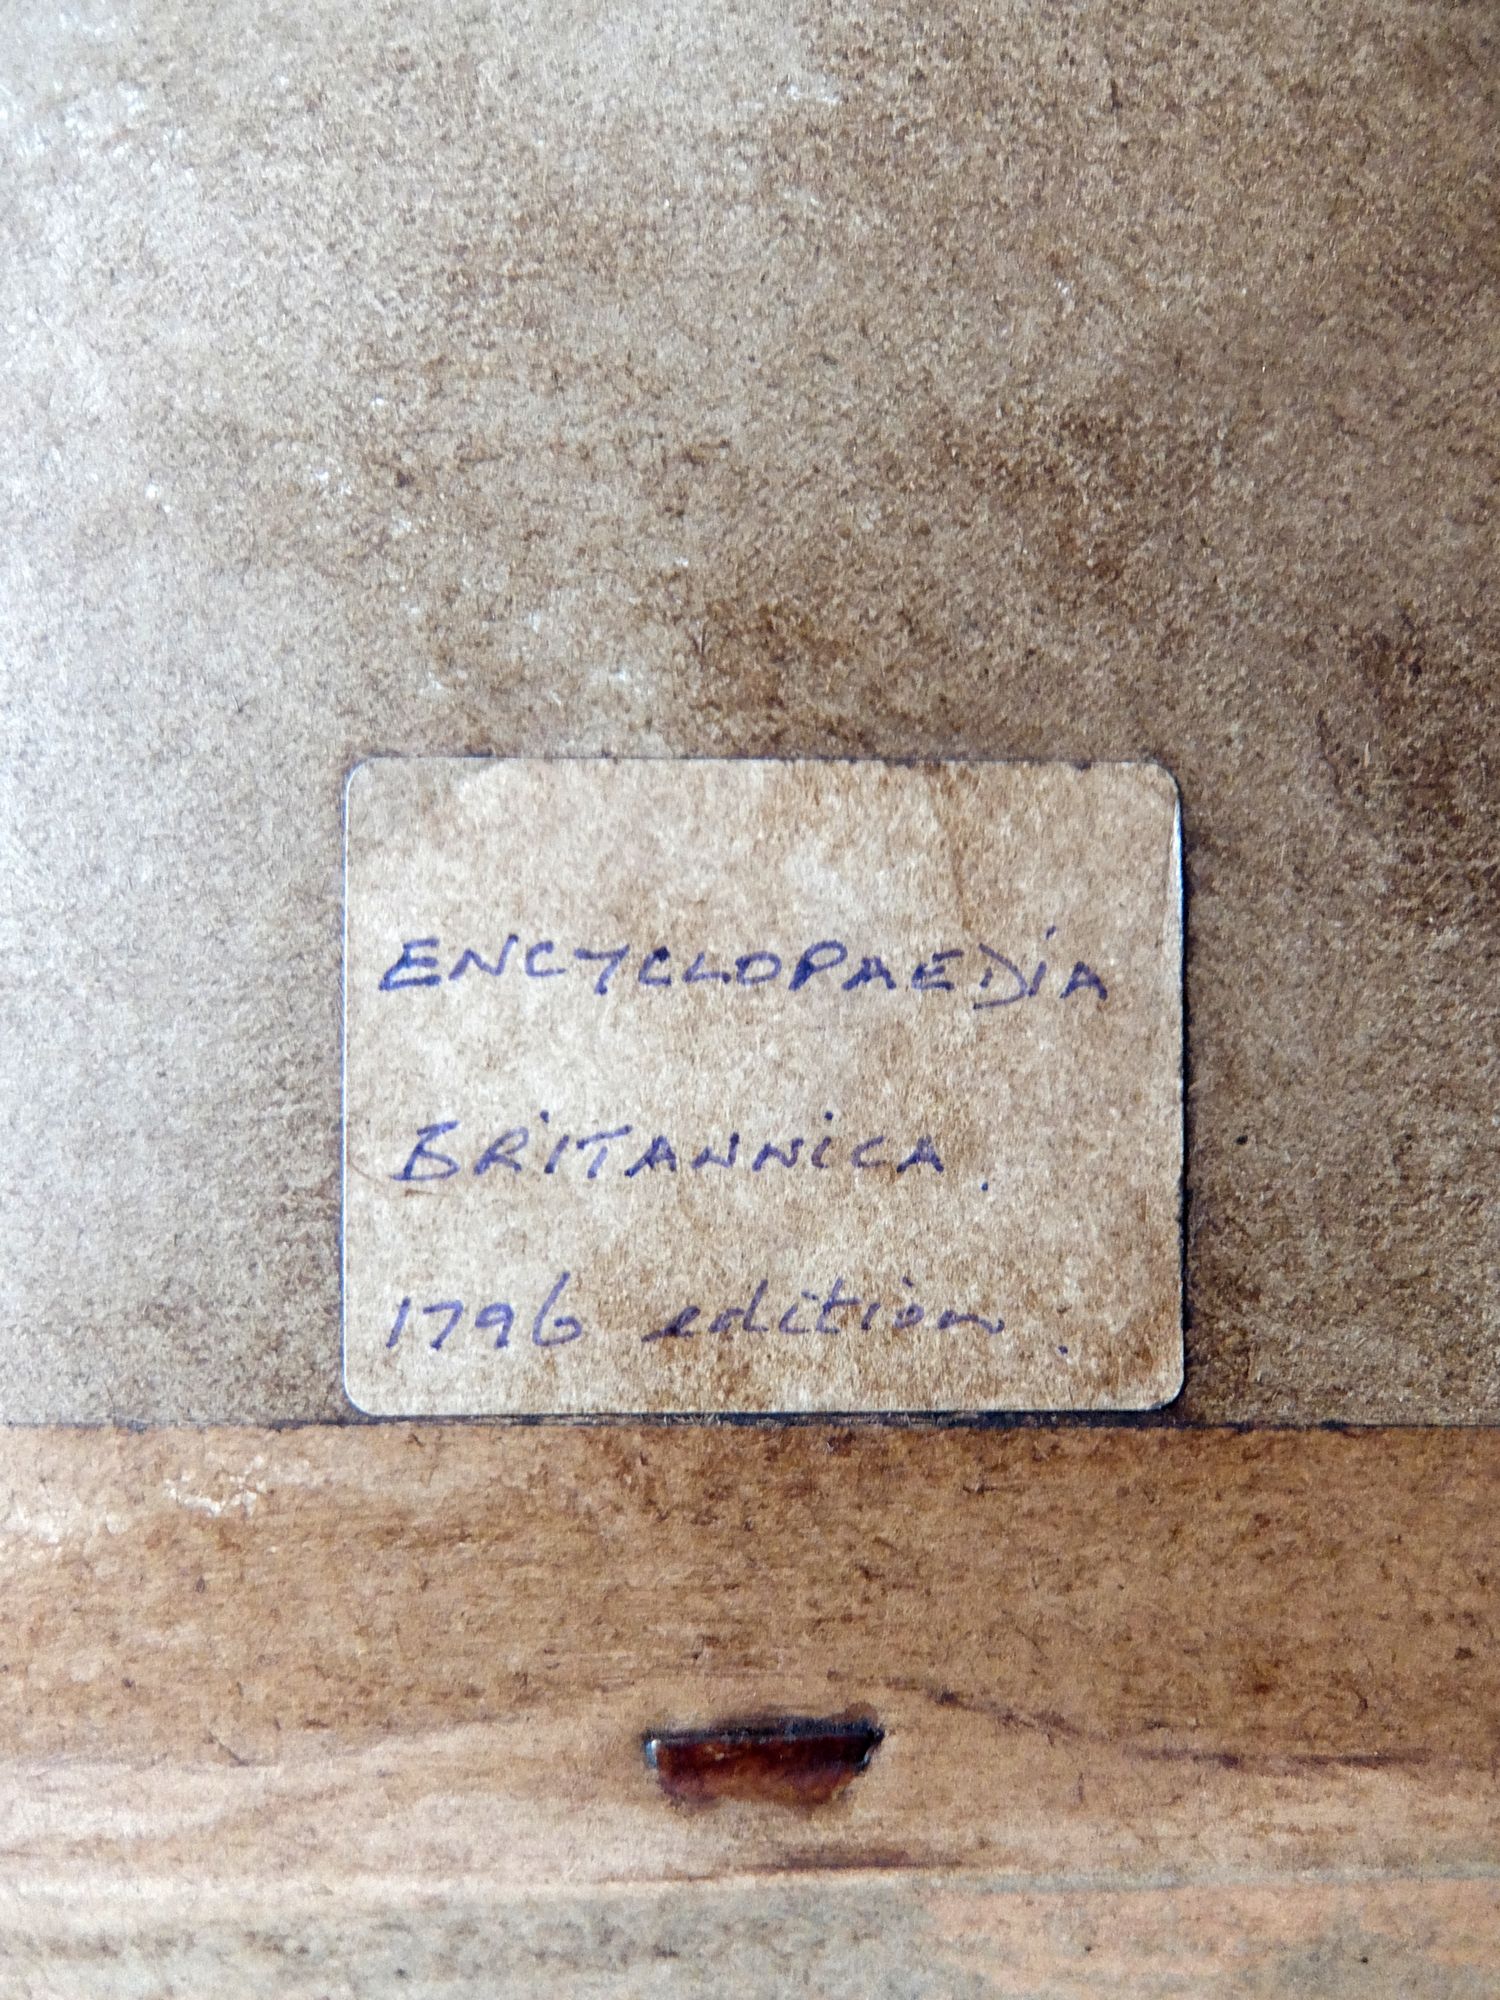 ENCYCLOPAEDiA
BRiTANNiCA.
1796 edition.